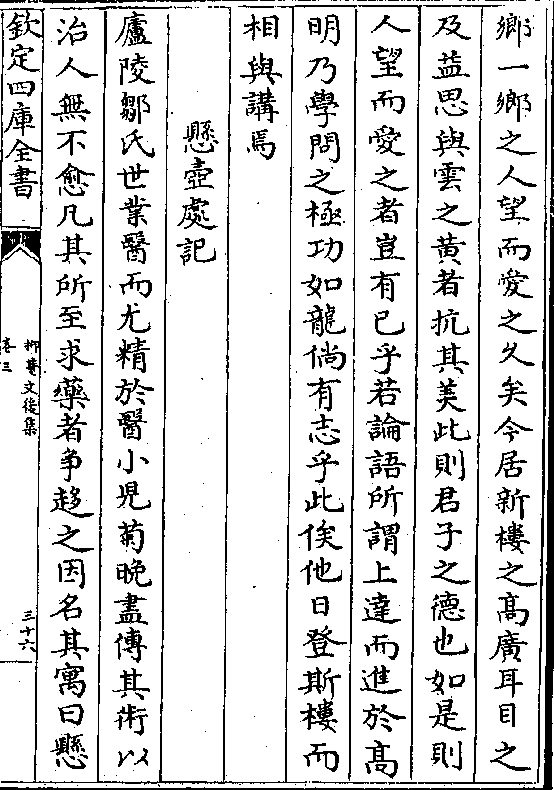 鄉一鄉之人望而愛之乆矣今居新樓之髙廣耳目之
及益思與雲之黄者抗其美此則君子之德也如是則
人望而愛之者豈有已乎若論語所謂上達而進於髙
明乃學問之極功如龍倘有志乎此俟他日登斯樓而
相與講焉
懸壺處記
廬陵鄒氏世業醫而尤精於醫小兒菊晚盡傳其術以
治人無不愈凡其所至求藥者争趍之因名其寓曰懸
欽定四庫全書
卷三
三十六